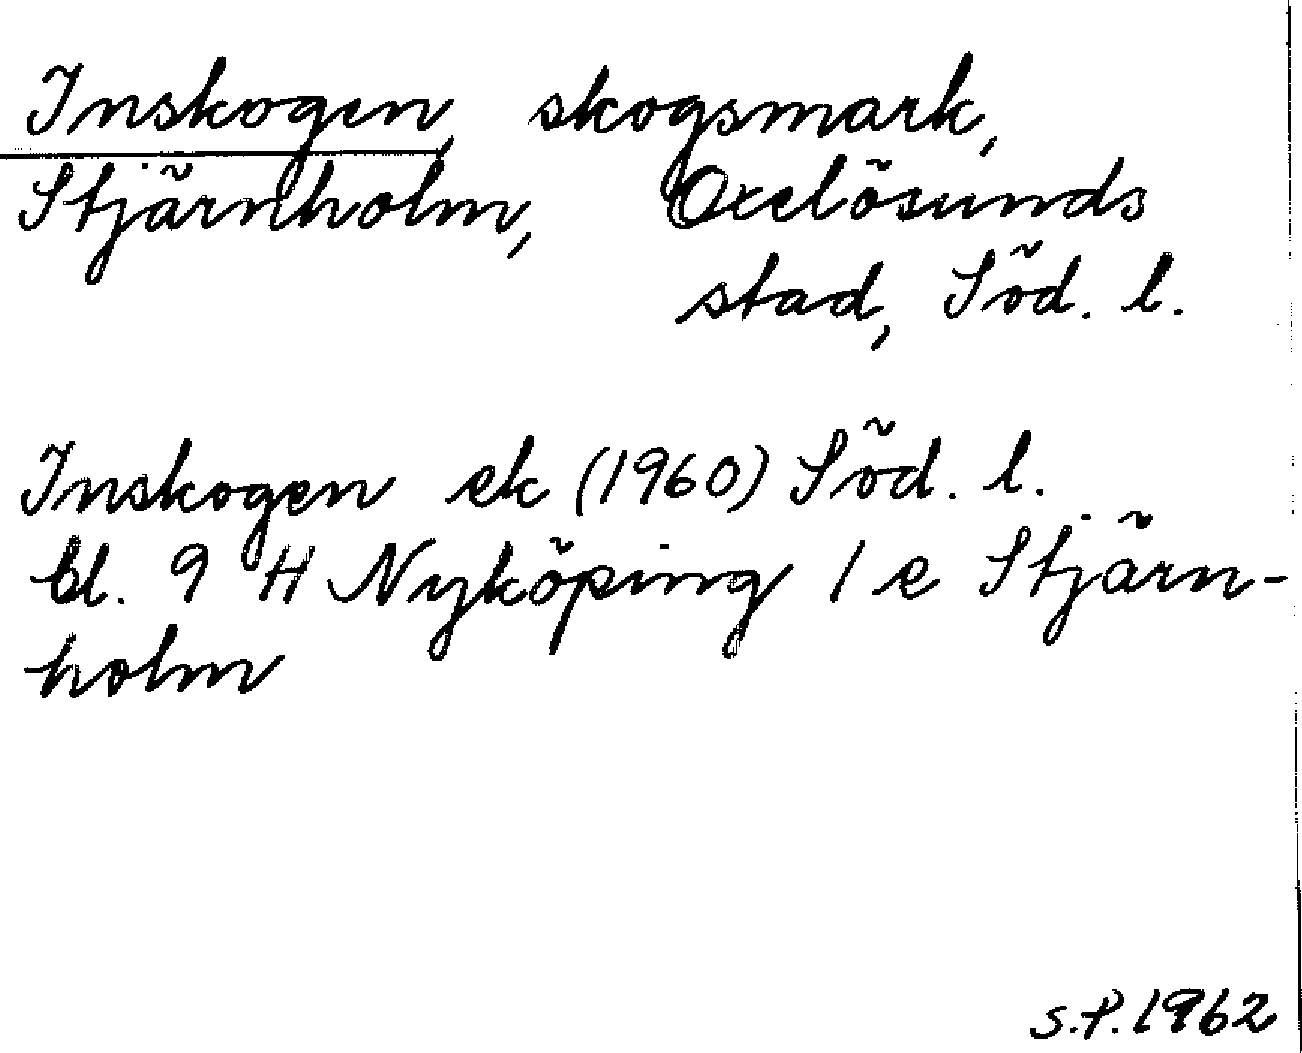 Inskogen, skogsmark,
Stjärnholm, Oxelösunds
stad, Söd. l.
Inskogen ek (1960) Söd. l.
bl. 9 H Nyköping 1 e Stjärn-
holm
S.P. 1962